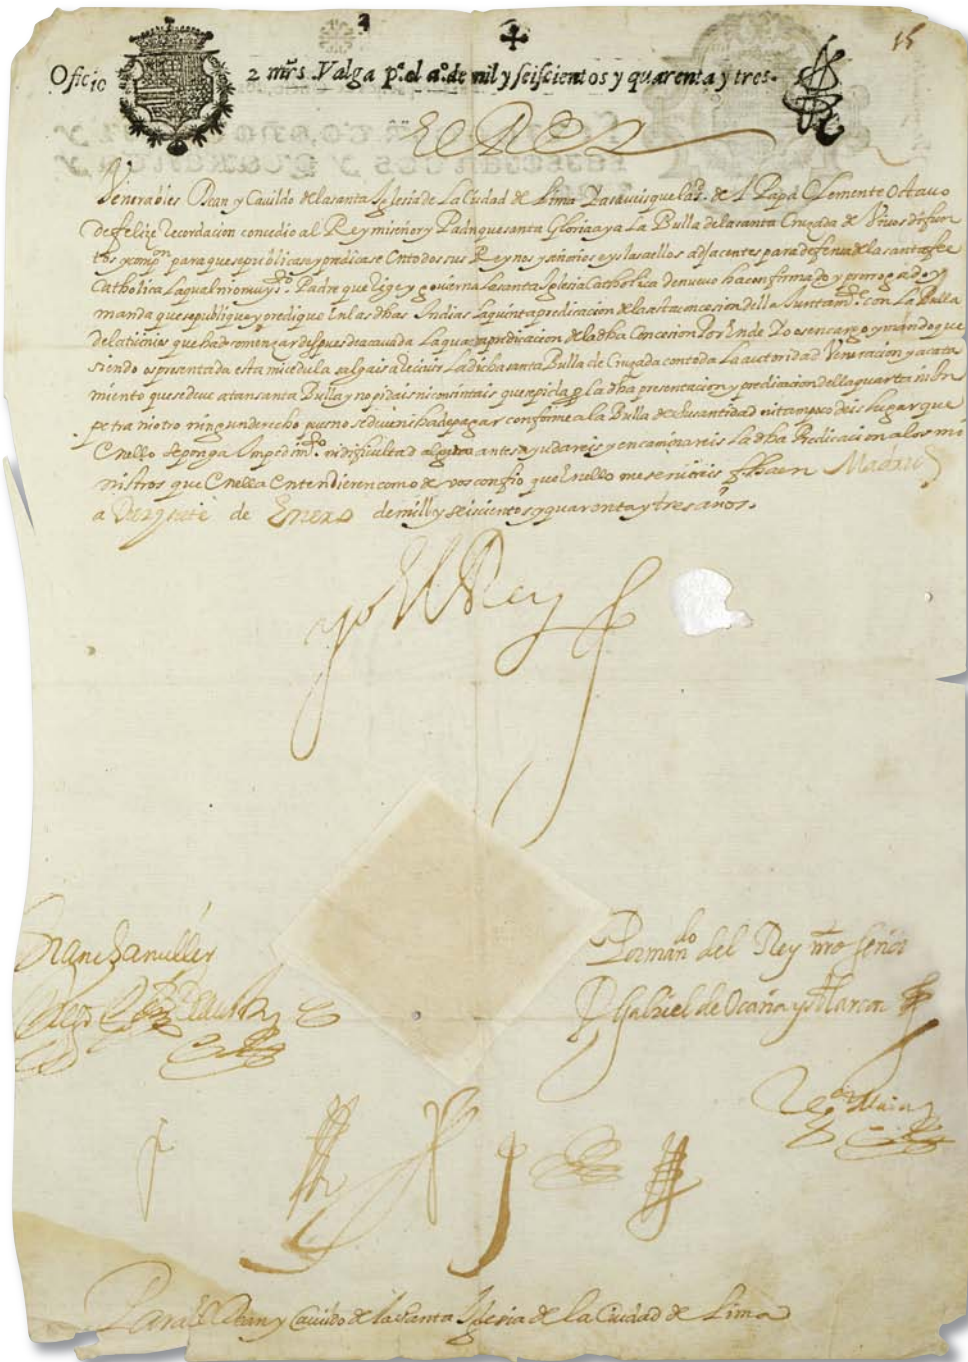 15
Oficio 2 mrs. Valga pa. el ao. de mil y seiscientos y quarenta y tres.
El Rey
Venerables Dean y Cavildo de la santa Iglesia de La Ciudad de Lima Ya saueis que la sd. de Papa Clemente Octauo
de felize Recordacion concedio al Rey mi señor y Padre que santa Gloria aya La Bulla de la santa Cruzada de Viuos difun
tos y compn. para que se publicase y predicase En todos sus Reynos y señorios e yslas a ellos adjacentes para defensa de la santa fee
Catholica La qual muy sto. Padre que Rige y gouierna La santa Iglesia Catholica de nueuo ha confirmado y prorogado y
manda que se publique y predique En las dhas Indias La quinta predicacion de la concesion della Juntamte. con La Bulla
de laticinios que ha de començar despues de acauada La quarta predicacion de la dha Concesion Por Ende Yo os encargo y mando que
siendo os presentada esta mi cedula salgais a Reciuir La dicha santa Bulla de Cruzada con toda La autoridad Veneracion y acata
miento que se deue a tan santa Bulla y no pidais ni consintais que se pida por la dha presentacion y predicacion della quarta ni Im
petra ni otro ningun derecho pues no se deue ni ha de pagar conforme a la Bulla de su santidad ni tampoco deis lugar que
En ello se ponga Impedimto. ni dificultad alguna antes ayudareis y encaminareis La dha Predicacion a los mi
nistros que En ella Entendieren como de vos confio que En ello me seruireis fha en Madrid
a Veynte de Enero de mill y seiscientos y quarenta y tres años.
yo El Rey
Por mando del Rey nro señor
D Gabriel de Ocaña y Alarcon
Para El Dean y Cauildo de la santa Iglesia de la Ciudad de Lima